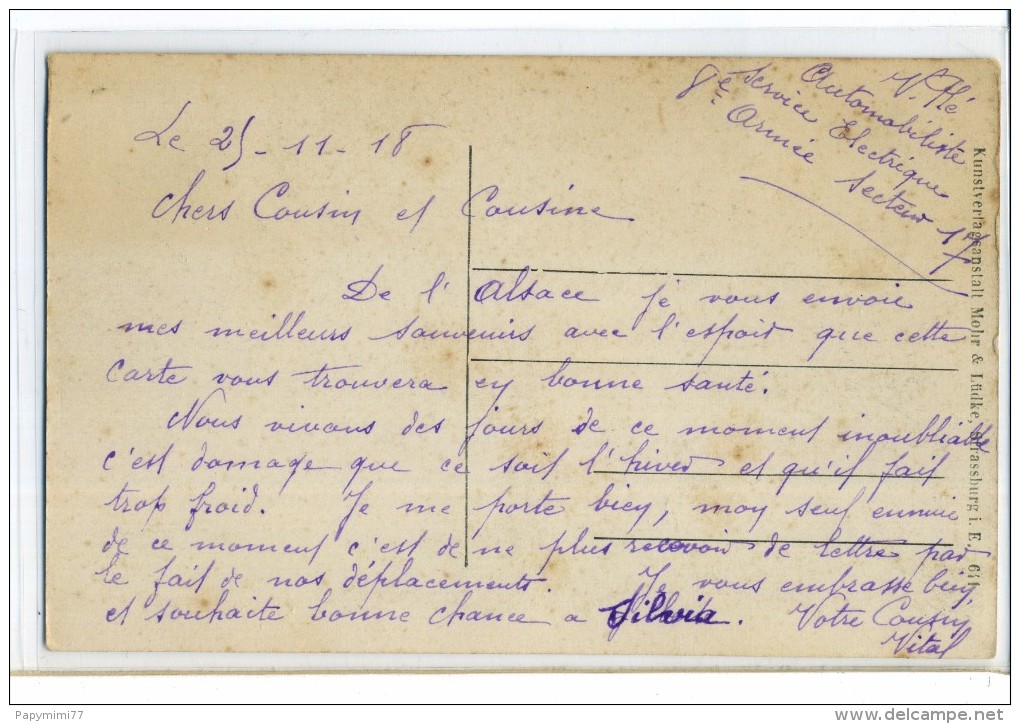 V. Hé
Automobiliste
Service Electrique
8e Armée Secteur 17
Le 25-11-18
Chers Cousin et Cousine
De l'Alsace je vous envoie
mes meilleurs souvenirs avec l'espoir que cette
carte vous trouvera en bonne santé.
Nous vivons des jours de ce moment inoubliable
c'est domage que ce soit l'hiver et qu'il fait
trop froid. Je me porte bien, mon seul ennuie
de ce moment c'est de ne plus recevoir de lettre par
le fait de nos déplacements. Je vous embrasse bien,
et souhaite bonne chance a Silvia. Votre Cousin
Vital
Kunstverlagsanstalt Mohr & Lüdke, Strassburg i. E.
Papymimi77
www.delcampe.net